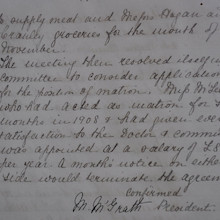 to supply meat and Messrs Fagan and
early groceries for the month of
November.
The meeting then resolved itself
committee to consider application
for the position of matron. Miss
who had acted as matron for
months in 1908 & had given every
satisfaction to the Doctor & committee
was appointed at a salary of £8
per year A month's notice on either
side would terminate the agreement
confirmed
M McGrath President